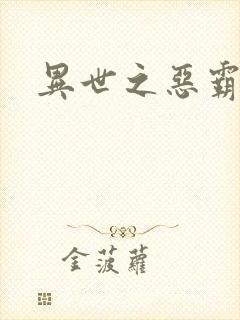 異世之惡霸
金菠蘿